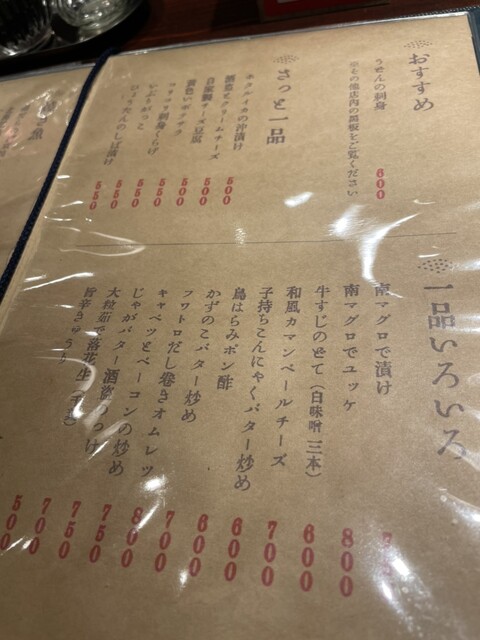 おすすめ
うせんの刺身 600
※その他店内の黒板をご覧ください
さっと一品
ホタルイカの沖漬け 500
酒盗とクリームチーズ 500
自家製チーズ豆腐 500
黄色いポテサラ 500
コリコリ刺身くらげ 550
いぶりがっこ 550
ひょうたんのしば漬け 550
一品いろいろ
南マグロで漬け
南マグロでユッケ 800
牛すじのどて（白味噌 三本） 600
和風カマンベールチーズ 700
子持ちこんにゃくバター炒め 600
鳥はらみポン酢 600
かずのこバター炒め 700
フワトロだし巻きオムレツ 800
キャベツとベーコンの炒め 750
じゃがバター酒盗のっけ 750
大粒茹で落花生（千葉） 700
旨辛きゅうり 500
魚